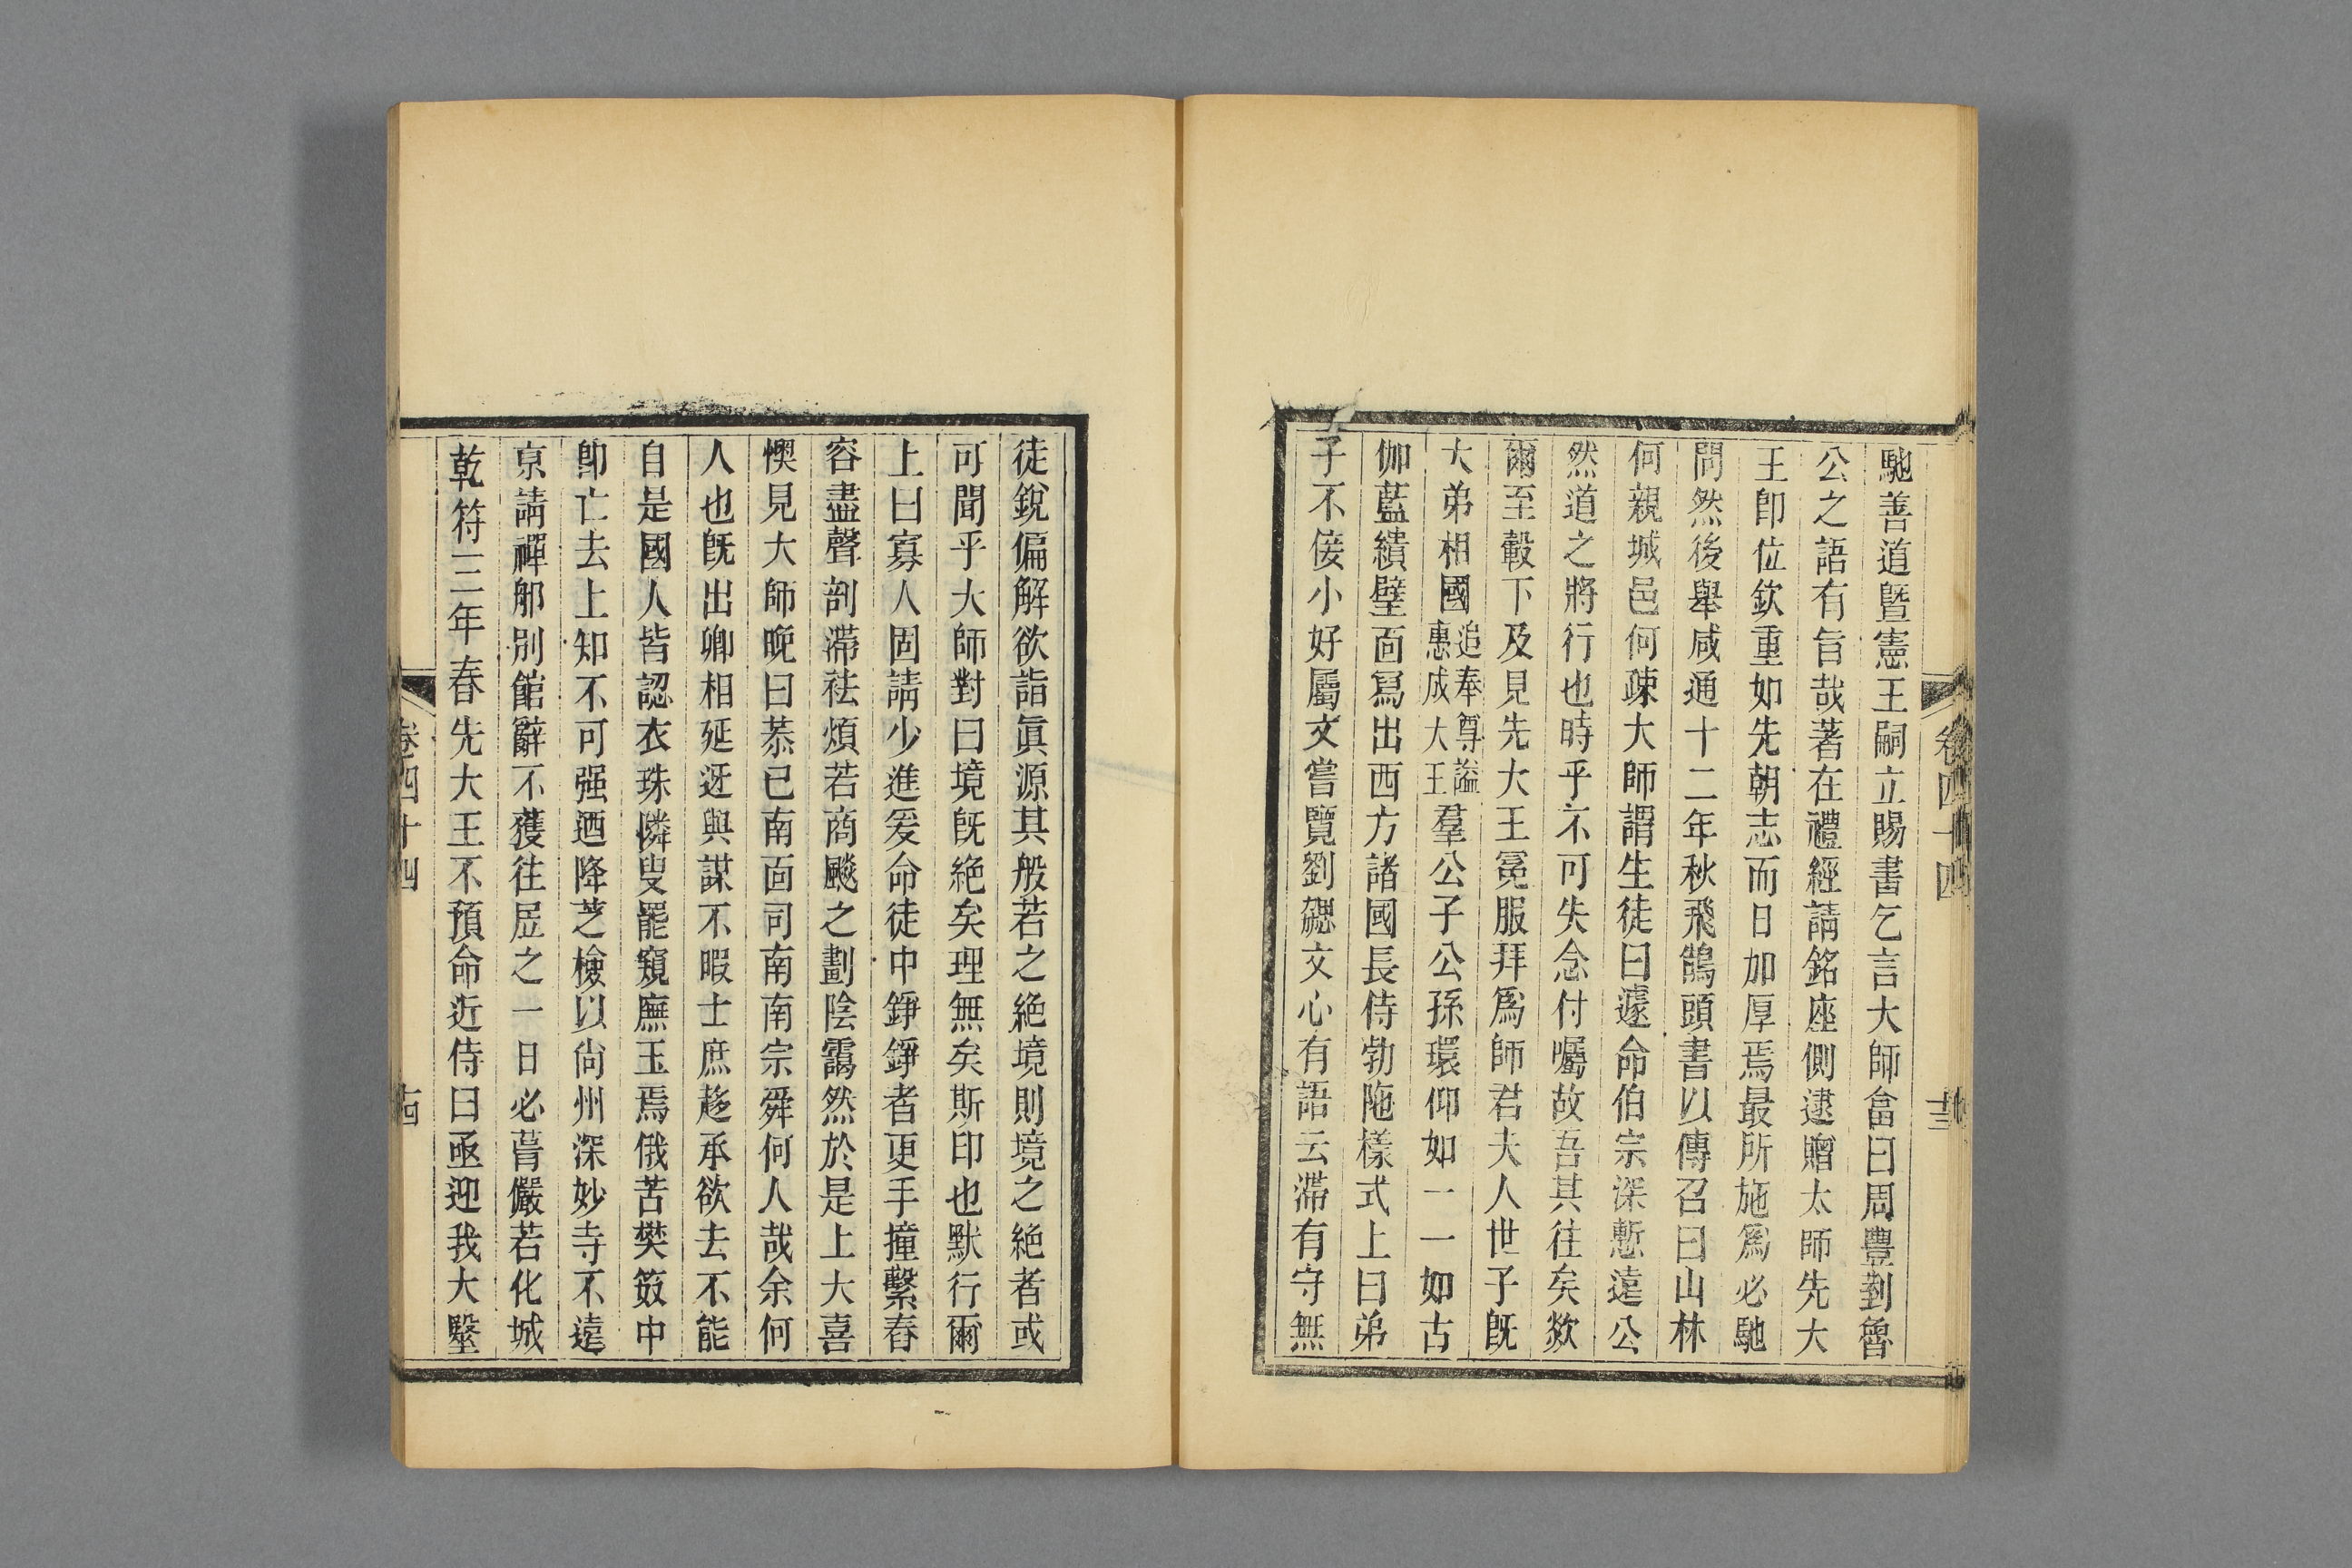 馳善道曁憲王嗣立賜書乞言大師畣曰周豐對魯
公之語有旨哉著在禮經請銘座側逮贈太師先大
王卽位欽重如先朝志而日加厚焉最所施爲必馳
問然後舉咸通十二年秋飛鵠頭書以傳召曰山林
何親城邑何疎大師謂生徒曰遽命伯宗深慙遠公
然道之將行也時乎不可失念付囑故吾其往矣欻
爾至轂下及見先大王冕服拜爲師君夫人世子旣
大弟相國追奉尊謚惠成大王羣公子公孫環仰如一一如古
伽藍繢壁面寫出西方諸國長侍勃陁樣式上曰弟
子不佞小好屬文嘗覽劉勰文心有語云滯有守無
卷四十四 十三
徒銳偏解欲詣眞源其般若之絶境則境之絶者或
可聞乎大師對曰境旣絶矣理無矣斯印也默行爾
上曰寡人固請少進爰命徒中錚錚者更手撞擊舂
容盡聲剖滯袪煩若商飈之劃陰靄然於是上大喜
懊見大師晚曰恭己南面司南南宗舜何人哉余何
人也旣出卿相延迓與謀不暇士庶趍承欲去不能
自是國人皆認衣珠隣叟罷窺廡玉焉俄苦樊笯中
卽亡去上知不可强迺降芝檢以尙州深妙寺不遠
京請禪郍別館辭不獲往居之一日必葺儼若化城
乾符三年春先大王不預命近侍曰亟迎我大毉
卷四十四 十四